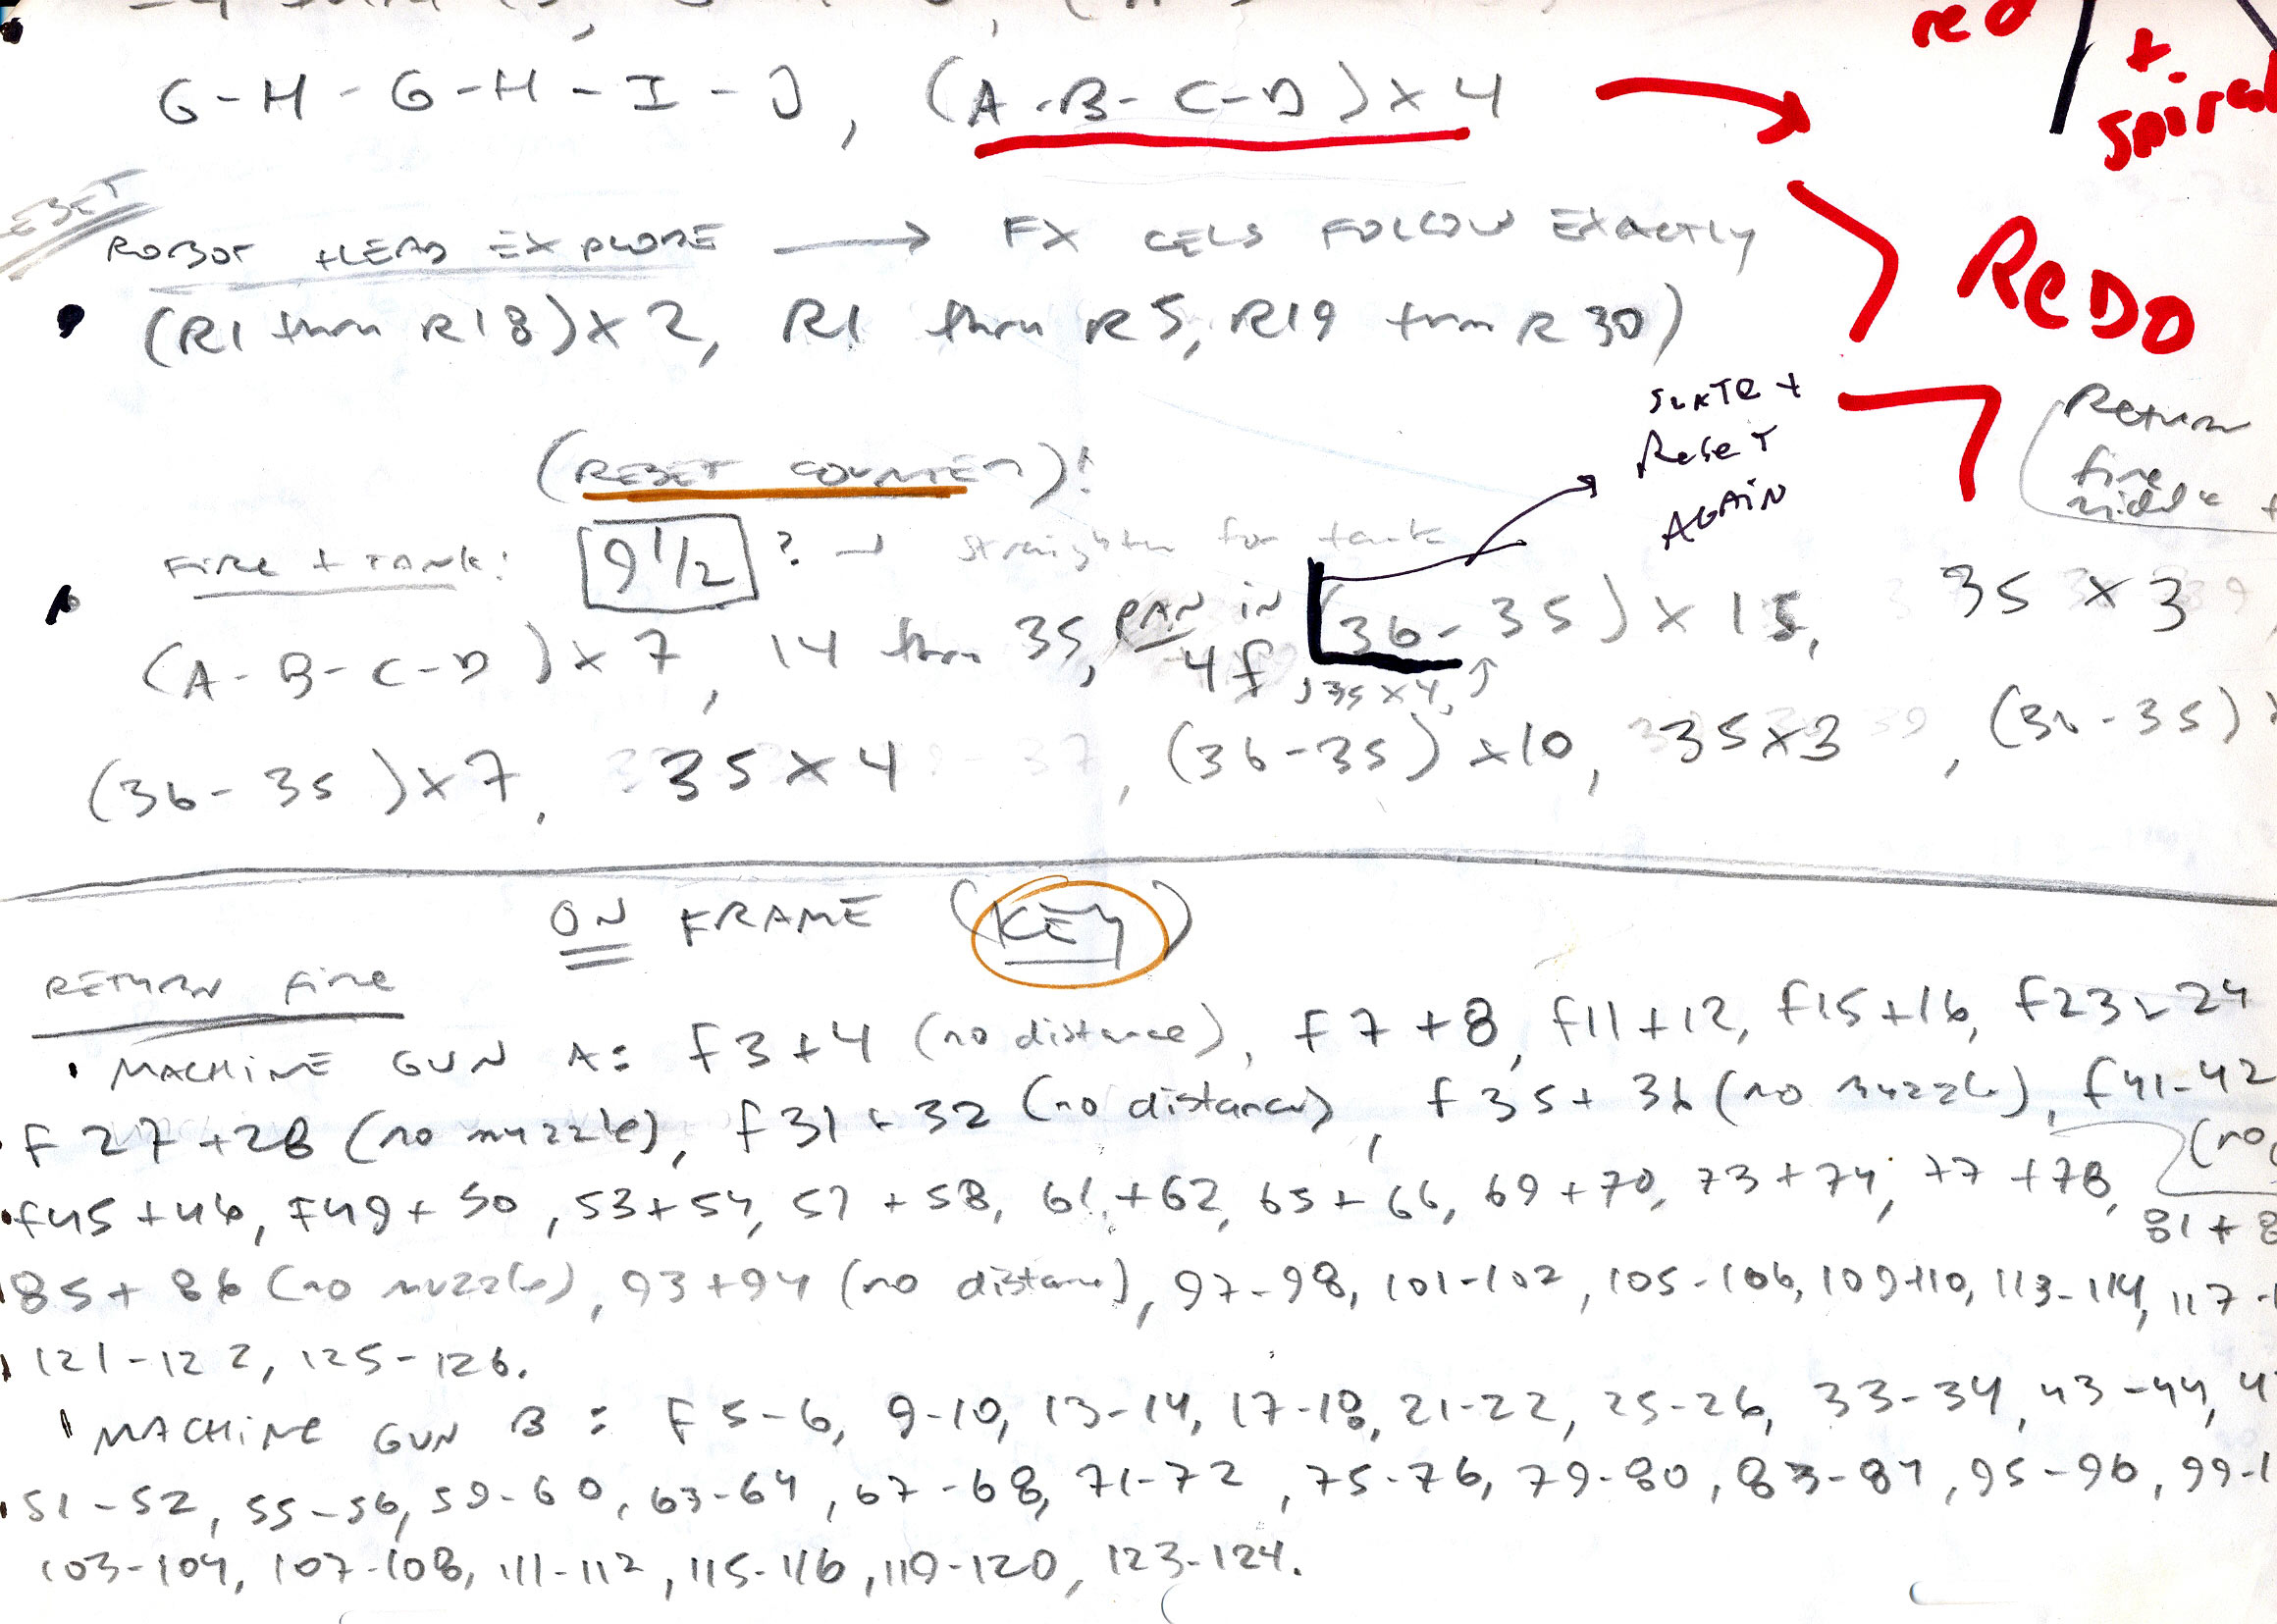 G-H-G-H-I-J, (A-B-C-D)x4
red
+
spiral
RESET
ROBOT HEAD EXPLORE → FX CELS FOLLOW EXACTLY
(R1 thru R18)x2, R1 thru R5, R19 thru R30)
REDO
(RESET COUNTER)!
SLATE +
RESET
AGAIN
Return
fire
middle +
FIRE + TANK: 9 1/2 ? → straighten for tank
(A-B-C-D)x7, 14 thru 35, PAN IN 4f, 35x4, (36-35)x15, 35x3
(36-35)x7, 35x4, (36-35)x10, 35x3, (36-35)
ON FRAME (KEY)
RETURN FIRE
• MACHINE GUN A: f3+4 (no distance), f7+8, f11+12, f15+16, f23+24
f27+28 (no muzzle), f31+32 (no distance), f35+36 (no muzzle), f41-42
(no
f45+46, f49+50, 53+54, 57+58, 61+62, 65+66, 69+70, 73+74, 77+78,
81+8
85+86 (no muzzle), 93+94 (no distance), 97-98, 101-102, 105-106, 109+110, 113-114, 117-1
121-122, 125-126.
MACHINE GUN B: f5-6, 9-10, 13-14, 17-18, 21-22, 25-26, 33-34, 43-44, 4
51-52, 55-56, 59-60, 63-64, 67-68, 71-72, 75-76, 79-80, 83-84, 95-96, 99-1
103-104, 107-108, 111-112, 115-116, 119-120, 123-124.